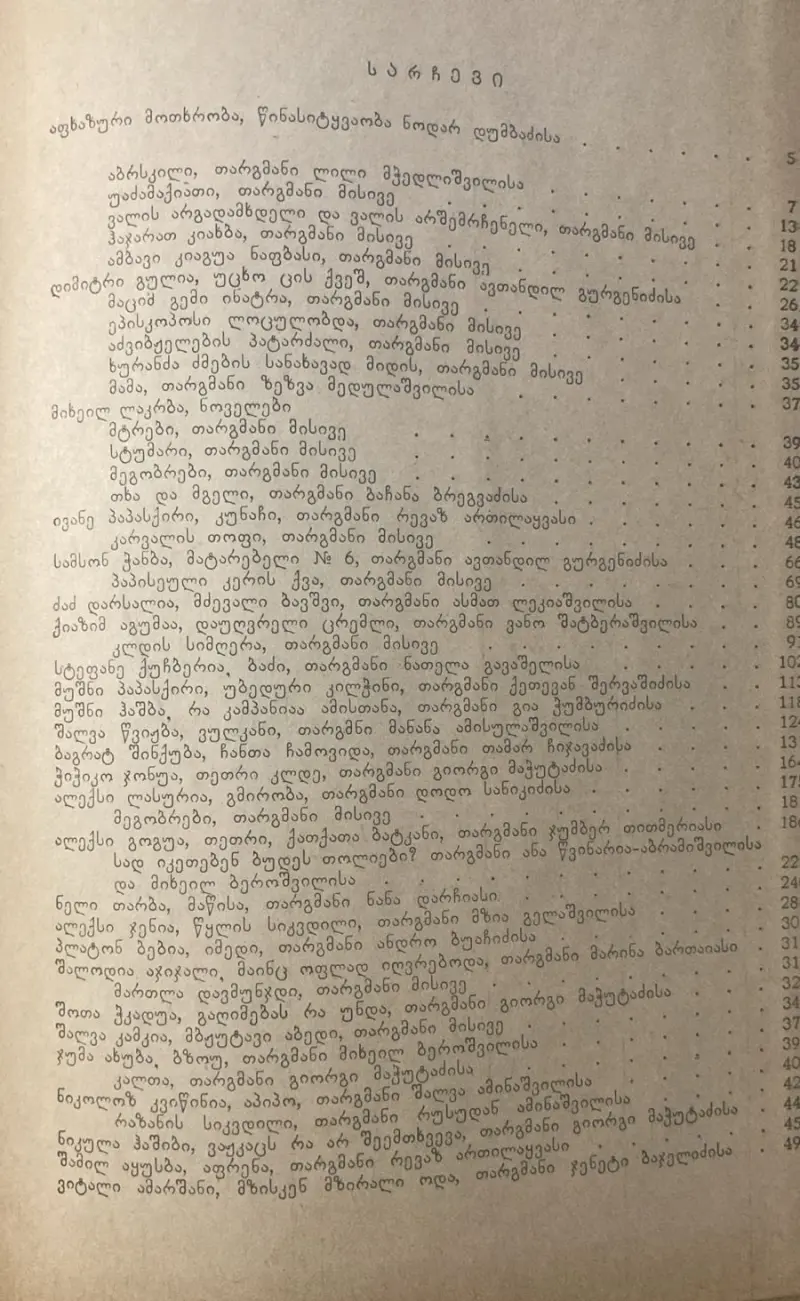 სარჩევი
აფხაზური მოთხრობა, წინასიტყვაობა ნოდარ დუმბაძისა . . . . . . 5
აბრსკილი, თარგმანი ლილი მჭედლიშვილისა . . . . . . 7
უაძამაქიათი, თარგმანი მისივე . . . . . . 13
ვალის არგადამხდელი და ვალის არშემრჩენელი, თარგმანი მისივე . . 18
ჰაჯარათ კიახბა, თარგმანი მისივე . . . . . . 21
ამბავი კიაგუა ნაფბასი, თარგმანი მისივე . . . . . . 22
დიმიტრი გულია, უცხო ცის ქვეშ, თარგმანი ავთანდილ გურგენიძისა . . 26
მაციმ გემი ინატრა, თარგმანი მისივე . . . . . . 34
ეპისკოპოსი ლოცულობდა, თარგმანი მისივე . . . . . . 34
აძვიბჟელების პატარძალი, თარგმანი მისივე . . . . . . 35
ხურანძა ძმების სანახავად მიდის, თარგმანი მისივე . . . . 35
მამა, თარგმანი ზეზვა მედულაშვილისა . . . . . . 37
მიხეილ ლაკრბა, ნოველები
მტრები, თარგმანი მისივე . . . . . . 39
სტუმარი, თარგმანი მისივე . . . . . . 40
მეგობრები, თარგმანი მისივე . . . . . . 43
თხა და მგელი, თარგმანი ბაჩანა ბრეგვაძისა . . . . . . 45
ივანე პაპასქირი, კუნაჩი, თარგმანი რევაზ ართილაყვასი . . . . . 46
კარვალის თოფი, თარგმანი მისივე . . . . . . 48
სამსონ ჭანბა, მატარებელი № 6, თარგმანი ავთანდილ გურგენიძისა . . . 66
პაპისეული კერის ქვა, თარგმანი მისივე . . . . . . 69
ძაძ დარსალია, მძევალი ბავშვი, თარგმანი ასმათ ლეკიაშვილისა . . . . 80
ქიაზიმ აგუმაა, დაუღვრელი ცრემლი, თარგმანი ვანო შატბერაშვილისა . . 89
კლდის სიმღერა, თარგმანი მისივე . . . . . . 9
სტეფანე ქუჩბერია, ბაძი, თარგმანი ნათელა გავაშელისა . . . . . 102
მუშნი პაპასქირი, უბედური კილჰინი, თარგმანი ქეთევან შერვაშიძისა . . 113
მუშნი ჰაშბა, რა კამპანიაა ამისთანა, თარგმანი გია ჭუმბურიძისა . . . 118
შალვა წვიჟბა, ვულკანი, თარგმნი მანანა ამისულაშვილისა . . . . . 124
ბაგრატ შინქუბა, ჩანთა ჩამოვიდა, თარგმანი თამარ ჩიჯავაძისა . . . . 13
ჭიჭიკო ჯონუა, თეთრი კლდე, თარგმანი გიორგი მაჭუტაძისა . . . . . 164
ალექსი ლასურია, გმირობა, თარგმანი დოდო სანიკიძისა . . . . . 175
მეგობრები, თარგმანი მისივე . . . . . . 18
ალექსი გოგუა, თეთრი, ქათქათა ბატკანი, თარგმანი ჯუმბერ თითმერიასი . 18
სად იკეთებენ ბუდეს თოლიები? თარგმანი ანა წვინარია-აბრამიშვილისა
და მიხეილ ბეროშვილისა . . . . . . 22
ნელი თარბა, მაწისა, თარგმანი ნანა დარჩიასი . . . . . . 24
ალექსი ჯენია, წყლის სიკვდილი, თარგმანი მზია გელაშვილისა . . . . 28
პლატონ ბებია, იმედი, თარგმანი ანდრო ბუაჩიძისა . . . . . . 30
შალოდია აჯიჯალი, მაინც ოფლად იღვრებოდა, თარგმანი მარინა ბართაიასი . 31
მართლა დავმუნჯდი, თარგმანი მისივე . . . . . . 31
შოთა ჭკადუა, გაღიმებას რა უნდა, თარგმანი გიორგი მაჭუტაძისა . . . 32
შალვა კამკია, მბჟუტავი აბედი, თარგმანი მისივე . . . . . . 34
ჯუმა ახუბა, ბზოუ, თარგმანი მიხეილ ბეროშვილისა . . . . . . 37
კალთა, თარგმანი გიორგი მაჭუტაძისა . . . . . . 39
ნიკოლოზ კვიწინია, აპიპო, თარგმანი შალვა ამინაშვილისა . . . . . 40
რაზანის სიკვდილი, თარგმანი რუსუდან ამინაშვილისა . . . . 42
ნიკულა ჰაშიბი, ვაჟკაცს რა არ შეემთხვევა, თარგმანი გიორგი მაჭუტაძისა . 44
შამილ აყუსბა, აფრენა, თარგმანი რევაზ ართილაყვასი . . . . . 45
ვიტალი ამარშანი, მზისკენ მზირალი ოდა, თარგმანი ჯენეტი ბაჯელიძისა . 49